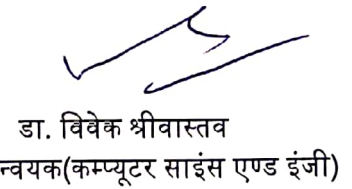 डा. विवेक श्रीवास्तव
न्वयक(कम्प्यूटर साइंस एण्ड इंजी)